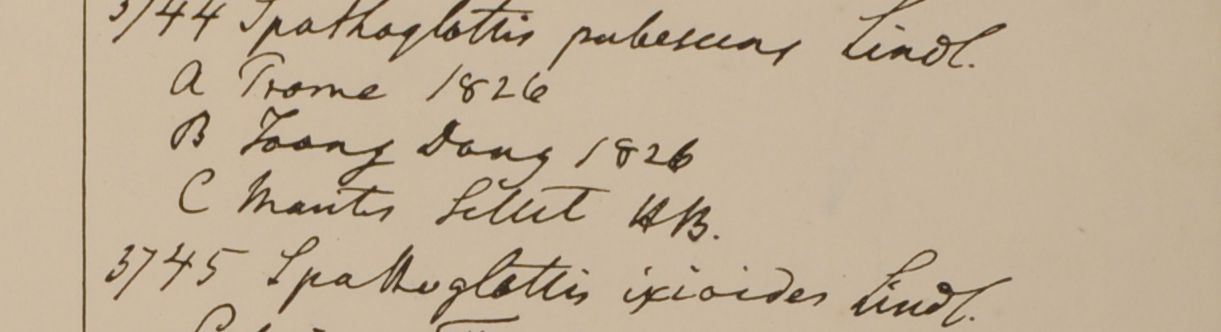 3744 Spathoglottis pubescens Lindl.
A Prome 1826
B Toong Dong 1826
C Montis Sillet HB.
3745 Spathoglottis ixioides Lindl.